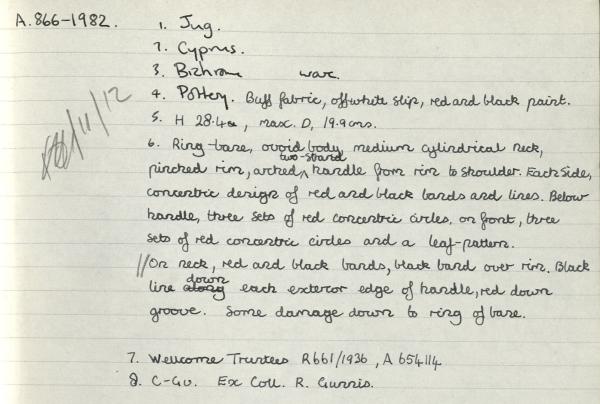 A.866-1982.
1. Jug.
2. Cyprus.
3. Bichrome ware.
4. Pottery. Buff fabric, offwhite slip, red and black paint.
5. H 28.4cm, max. D, 19.9cms.
6. Ring-base, ovoid body, medium cylindrical neck,
pinched rim, arched two-strand handle from rim to shoulder. Each side,
concentric design of red and black bands and lines. Below
handle, three sets of red concentric circles. on front, three
sets of red concentric circles and a leaf-pattern.
// On neck, red and black bands, black band over rim. Black
line along down each exterior edge of handle, red down
groove. Some damage down to ring of base.
7. Wellcome Trustees R661/1936, A 654114
8. C-Gu. Ex Coll. R. Gunnis.
/11/12